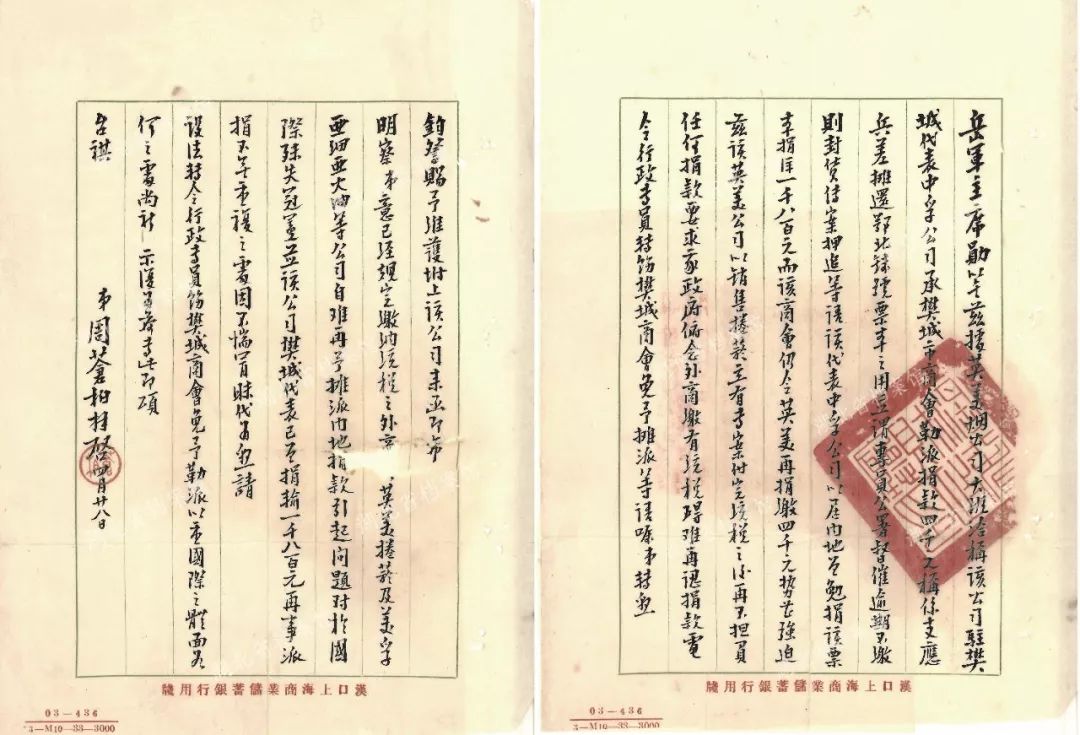 岳軍主席勛鑒茲據英美烟公司大班洽稱該公司駐樊
城代表中孚公司承樊城市商會勒派捐款四千又稱係支應
兵差攤還鄂北錢號票本之用並謂專員公署督催逾期不繳
則封貨傳案押追等語該代表中孚公司以居內地曾勉捐該票
本捐洋一千八百元而該商會仍令英美再捐繳四千元勢甚強迫
茲該英美公司以銷售捲菸立有專案付定統稅之後再不担負
任何捐款要求我政府俯念外商繳有統稅碍難再認捐款電
令行政專員轉飭樊城商會免予攤派等語嗾弟轉懇
鈞詧賜予維護附上該公司來函即希
明察弟意已經規定繳納統稅之外商 英美捲菸及美孚
亞細亞大油等公司自難再予攤派內地捐款引起問題對於國
際殊失冠蓋並該公司樊城代表已曾捐輸一千八百元再事派
捐不無重複之處因不惴冒昧代為懇請
設法轉令行政專員飭樊城商會免予勒派以重國際之體面為
何之處尚祈示復為禱專此即頌
台祺
弟周蒼柏拜啓四月廿八日
漢口上海商業儲蓄銀行用牋
漢口上海商業儲蓄銀行用牋
03-436
3-M10-33-3000
03-436
3-M10-33-3000